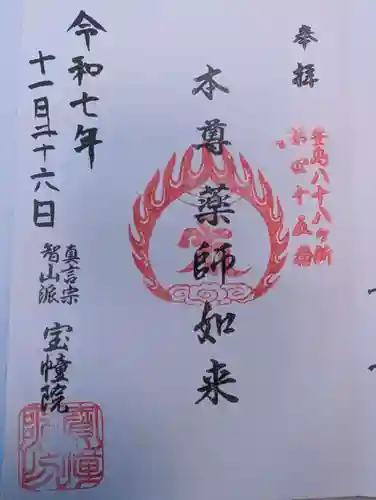 奉拝
豊島八十八ヶ所
第四十五番
本尊薬師如来
令和七年
十一日二十六日
真言宗
智山派
宝幢院